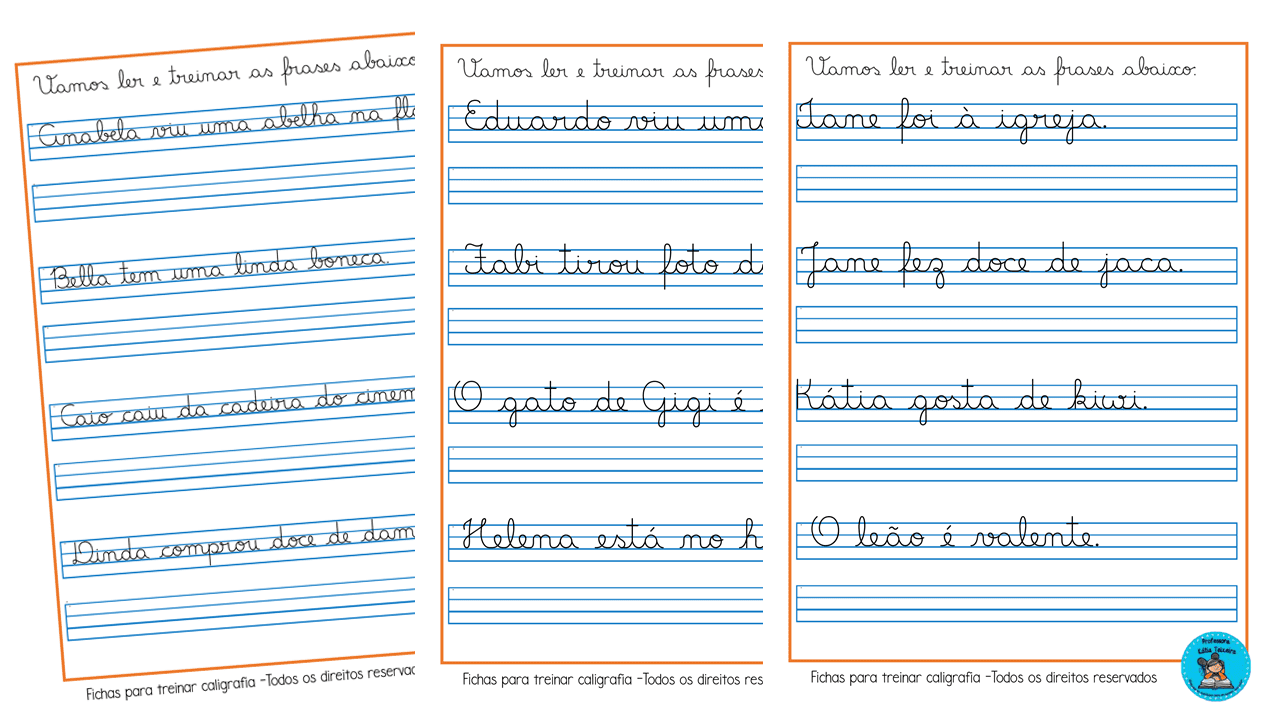 Vamos ler e treinar as frases abaixo
Anabela viu uma abelha na flo
Bella tem uma linda boneca.
Caio caiu da cadeira do cinem
Dinda comprou doce de dam
Fichas para treinar caligrafia -Todos os direitos reservad
Vamos ler e treinar as frases
Eduardo viu uma
Fabi tirou foto d
O gato de Gigi é
Helena está no h
Fichas para treinar caligrafia -Todos os direitos res
Vamos ler e treinar as frases abaixo.
Iane foi à igreja.
Jane fez doce de jaca.
Kátia gosta de kiwi.
O leão é valente.
Fichas para treinar caligrafia -Todos os direitos reservados
Professora
Teixeira